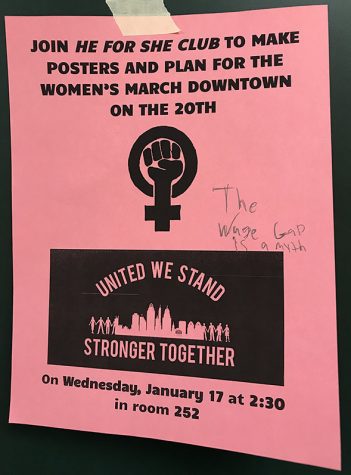 JOIN HE FOR SHE CLUB TO MAKE
POSTERS AND PLAN FOR THE
WOMEN'S MARCH DOWNTOWN
ON THE 20TH
The
Wage Gap
is a myth
UNITED WE STAND
STRONGER TOGETHER
On Wednesday, January 17 at 2:30
in room 252